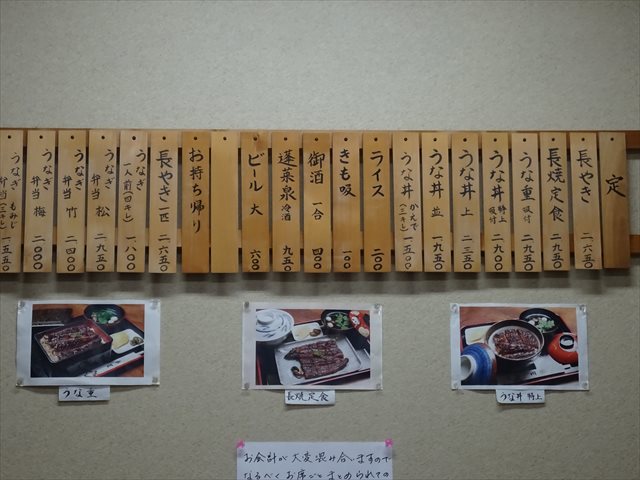 定
長やき 二、六五〇
長焼定食 二、九五〇
うな重 吸付 二、九五〇
うな丼 特上 吸付 二、九〇〇
うな丼 上 二、三五〇
うな丼 並 一、九五〇
うな丼 かえで (三キレ) 一、五五〇
ライス 二〇〇
きも吸 一〇〇
御酒 一合 四〇〇
蓬莱泉 冷酒 九五〇
ビール 大 六〇〇
お持ち帰り
長やき 一匹 二、六五〇
うなぎ 一人前(四キレ) 一、八〇〇
うなぎ 弁当 松 二、九五〇
うなぎ 弁当 竹 二、四〇〇
うなぎ 弁当 梅 二、〇〇〇
うなぎ 弁当 もみじ (三キレ) 一、五五〇
うな重
長焼定食
うな丼 特上
お会計が大変混み合いますので
なるべくお席ごとまとめられての